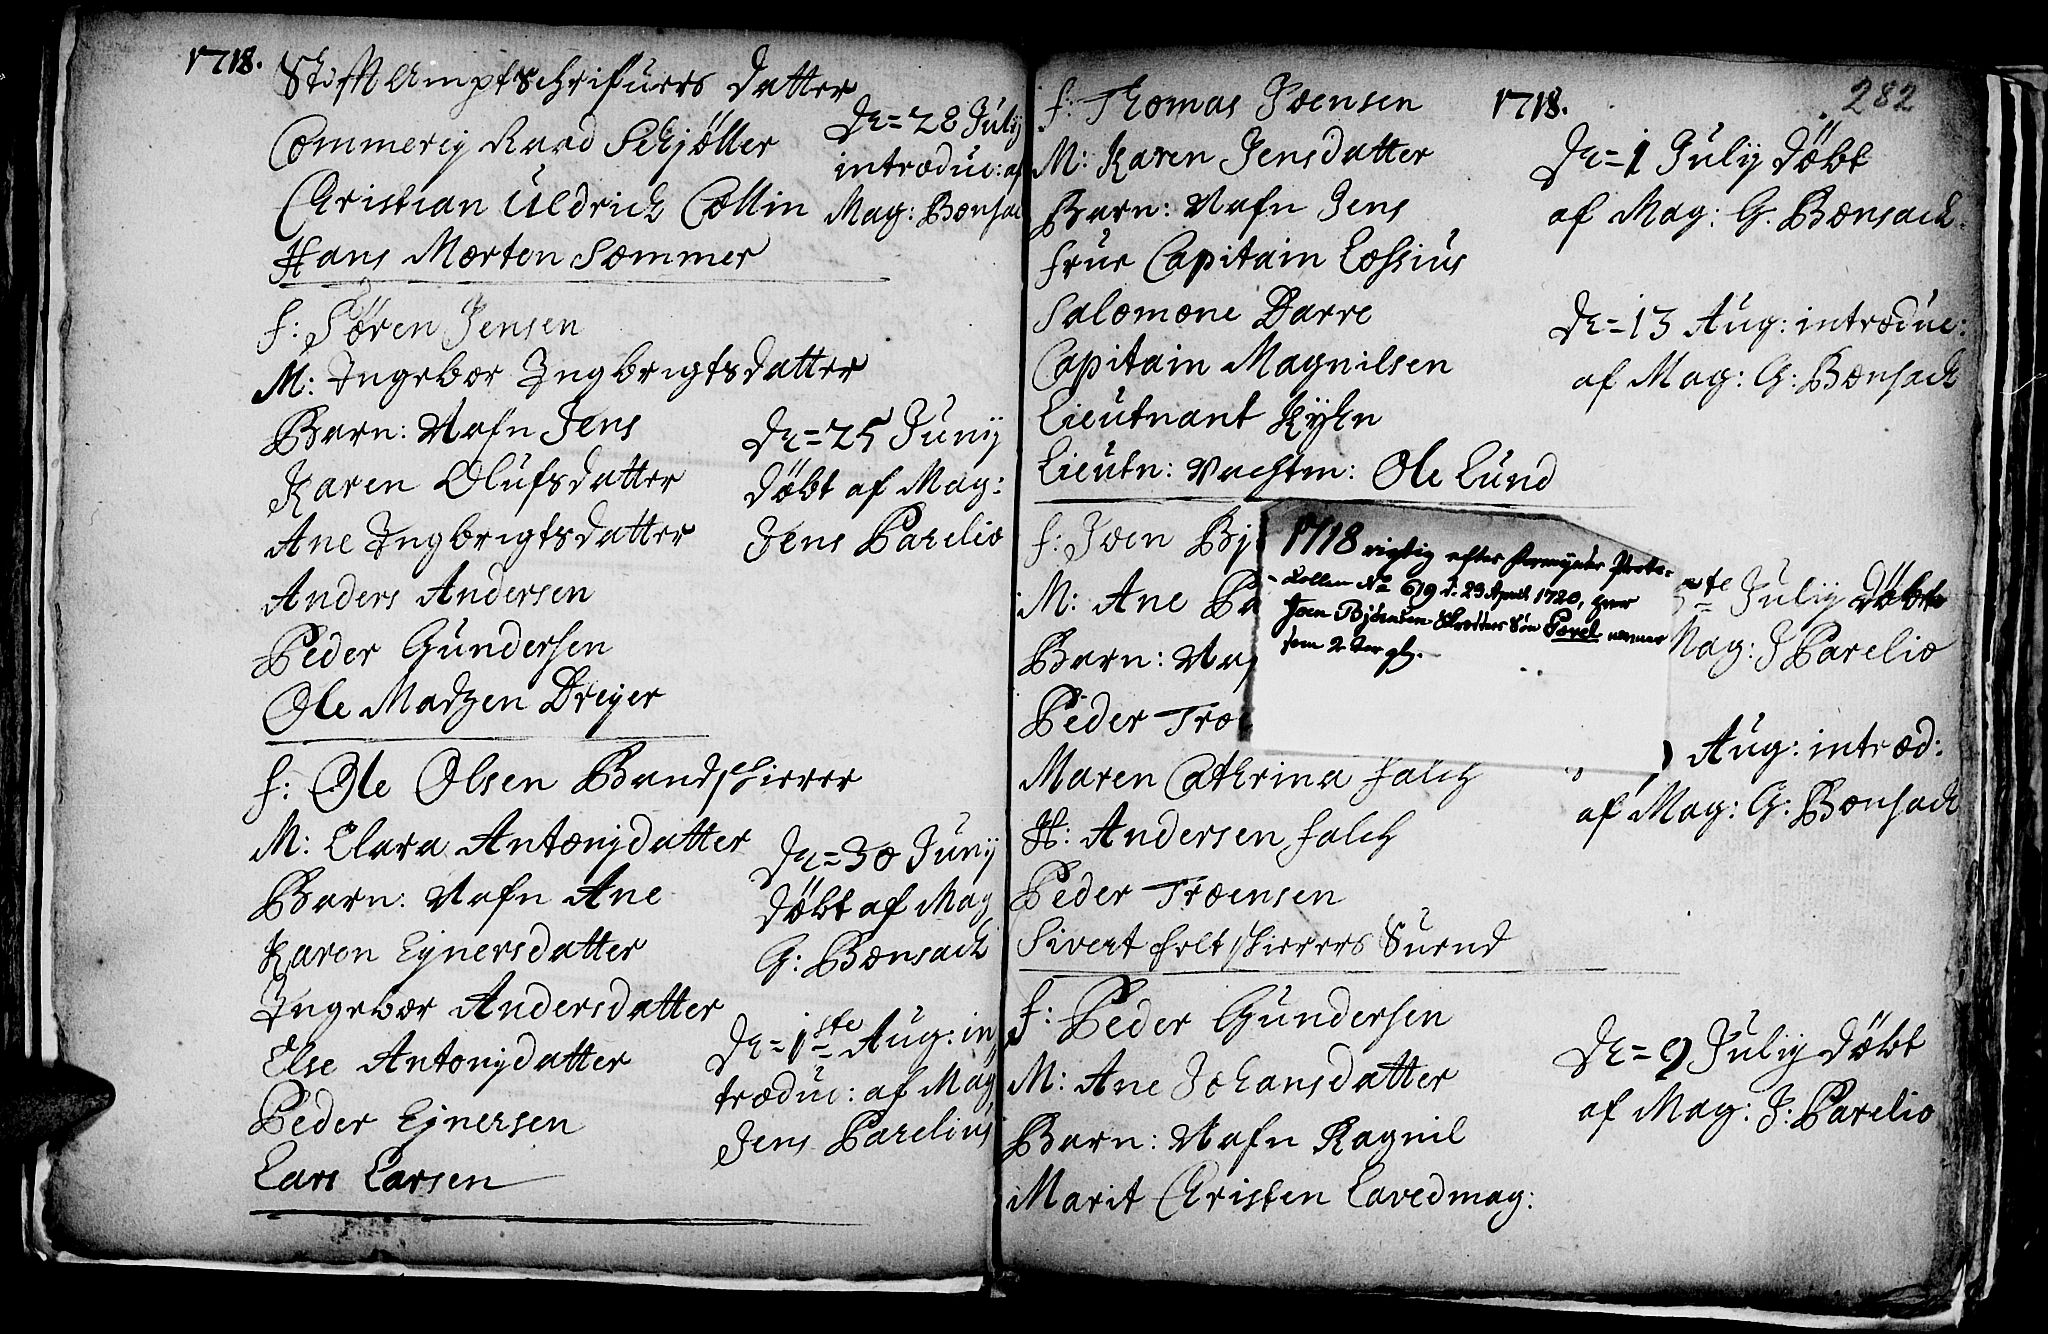 1718.
Stift Amptschrifuers datter
Commerij Raad Schjöller
Christian Uldrich Collin
Hans Morten Sommer
De = 28 July
introduc: af
Mag: Bonsac
f: Sören Jensen
M: Ingebor Ingbrigtsdatter
Barn: Nafn Jens
Karen Olufsdatter
Ane Ingbrigtsdatter
Anders Andersen
Peder Gundersen
Ole Madzen Dreyer
De = 25 Juny
döbt af Mag:
Jens Parelio
f: Ole Olsen Bundschierer
M: Clara Antonijdatter
Barn: Nafn Ane
Karen Ejnersdatter
Ingebor Andersdatter
Else Antonijdatter
Peder Ejnersen
Lars Larsen
De = 30 Juny
döbt af Mag
G: Bonsach
De = 1ste Aug: in,
troduc: af Mag
Jens Parelius
282
1718.
f: Thomas Joensen
M: Karen Jensdatter
Barn: Nafn Jens
Frue Capitain Lossius
Salomone Darre
Capitain Magnilsen
Lieutnant Kyhn
Lieutn: Vachtm: Ole Lund
De = 1 July döbt
af Mag: G. Bonsach.
De = 13 Aug: introduc:
af Mag: G: Bonsach
f: Joen Bj
M: Ane
Barn: Na
Peder Tro
Maren Cathrina Falch
H: Andersen Falch
Peder Troensen
Sivert feltschierers Suend
1718 rigtig efter Formynder Proto-
-kollen No 619 d. 29 April 1720, hvor
Joen Björnsen Skræders Søn Povel nævnes
som 2 Aar gl.
te July döbt
Mag: J Parelio
Aug: introd:
af Mag: G: Bonsach
f: Peder Gundersen
M: Ane Johansdatter
Barn: Nafn Ragnil
Marit Christen Lavedmag:
De = 9 July döbt
af Mag: J: Parelio